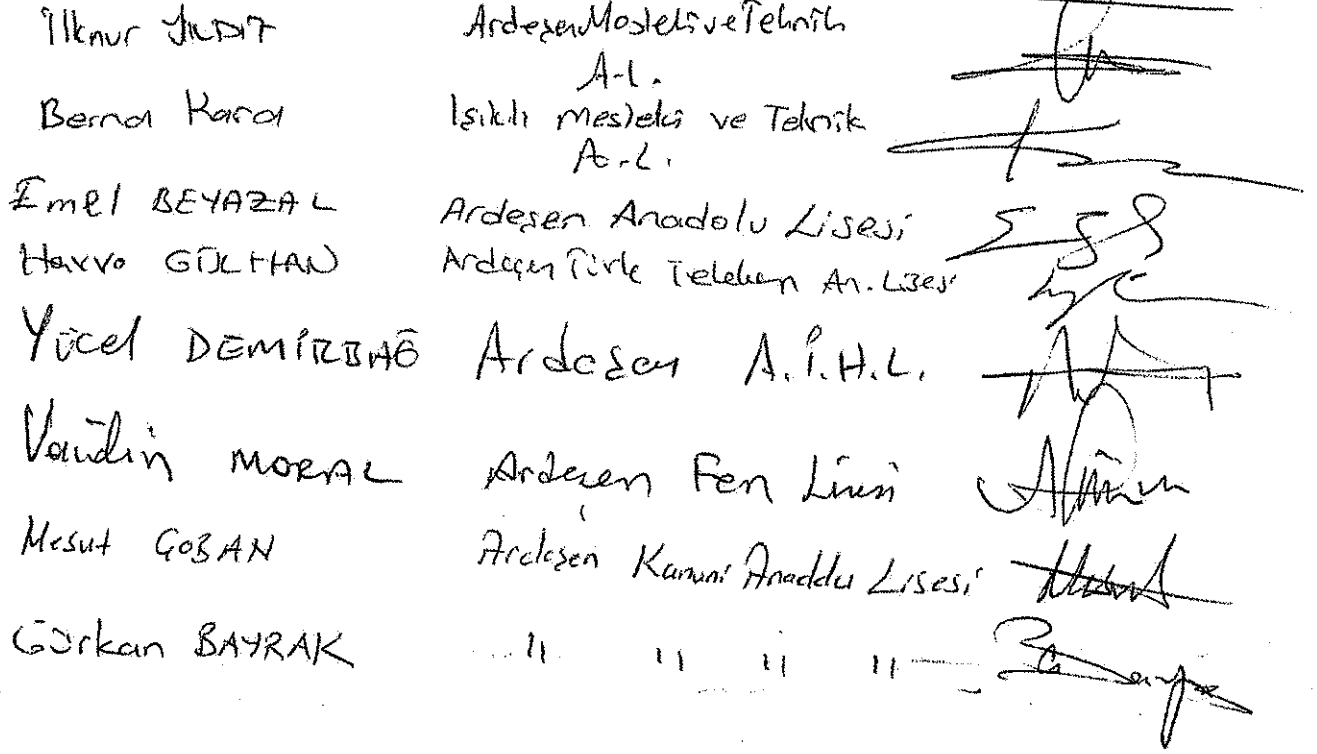 İlknur YILDIZ Ardeşen Mesleki ve Teknik
A.L.
Berna Kara Işıklı Mesleki ve Teknik
A.L.
Emel BEYAZAL Ardeşen Anadolu Lisesi
Havva GÜLHAN Ardeşen Türk Telekom An. Lisesi
Yücel DEMİRBAĞ Ardeşen A.İ.H.L.
MORAL Ardeşen Fen Lisesi
Mesut ÇOBAN Ardeşen Kanuni Anadolu Lisesi
Gürkan BAYRAK " " " "